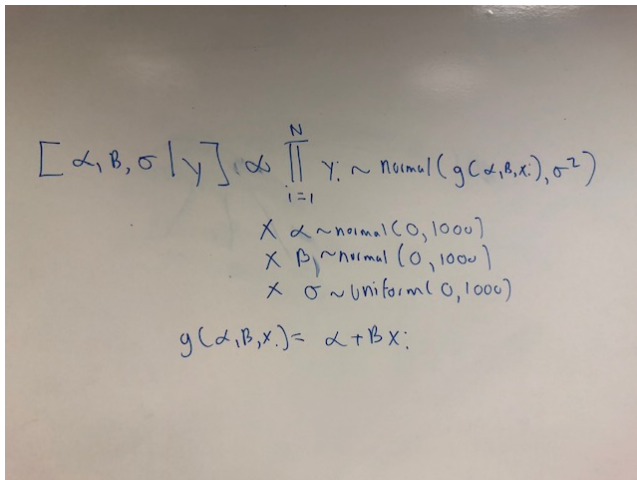 [α, β, σ | y] ∝ ∏_{i=1}^{N} y_i ~ normal(g(α, β, x_i), σ²)
× α ~ normal(0, 1000)
× β ~ normal(0, 1000)
× σ ~ Uniform(0, 1000)
g(α, β, x_i) = α + βx_i